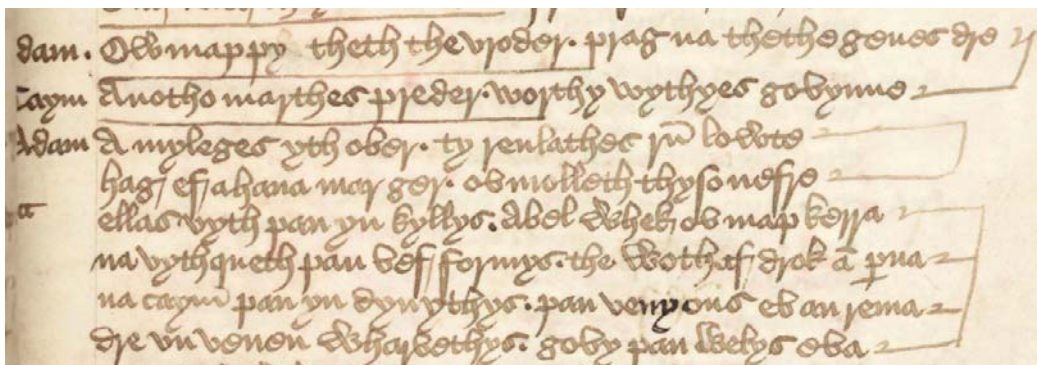 dam. Ow map py theth the vroder. prag na theth e genes dre
Caym Anotho marthes preder. worthy wythyes govynne
Adam A myleges yth ober. ty renlathes rū lowte
hag ef a hana mar ger. ow molleth thyso nefre
ellas vyth pan yn kyllys. Abel whek ow map kerra
na vythqueth pan vef formys. the woth ef drok a ꝑna
na caym pan yn dynythys. pan venyons ow an rema
dre vn venen wharvethys. gowy pan welys eva